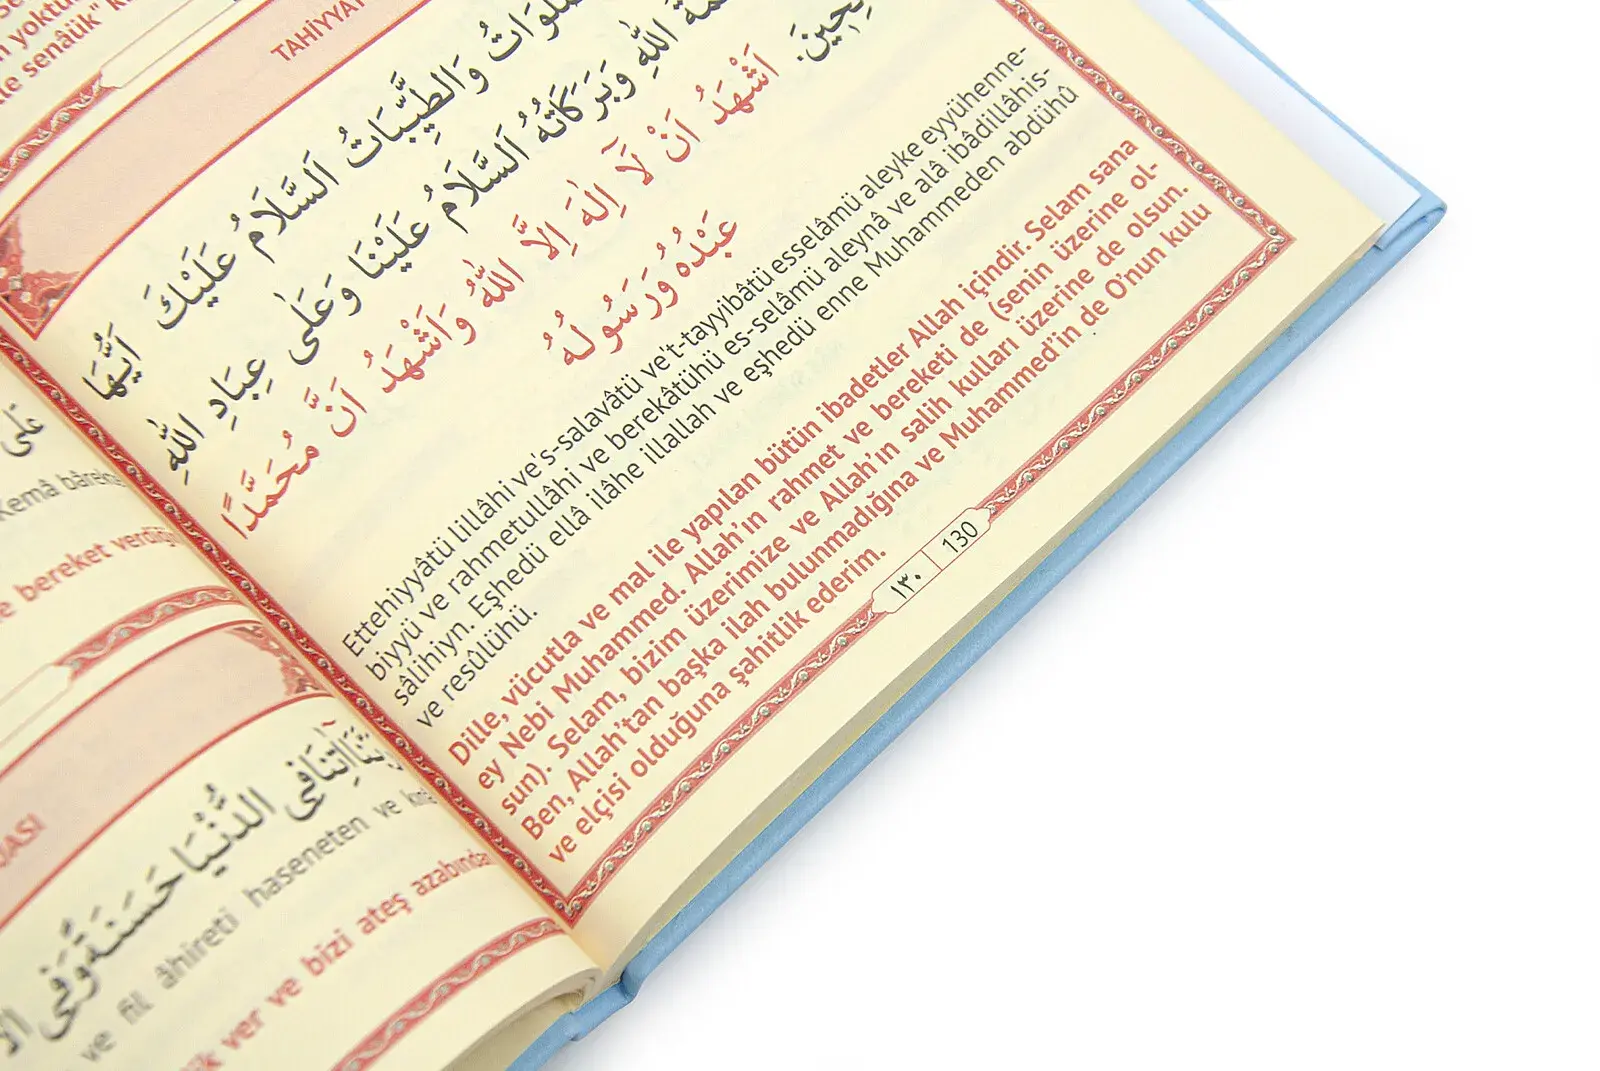 n yoktu
le senâük"
TAHİYYAT
وَالطَّيِّبَاتُ اَلسَّلَامُ عَلَيْكَ اَيُّهَا
اللّٰهِ وَبَرَكَاتُهُ اَلسَّلَامُ عَلَيْنَا وَعَلٰى عِبَادِ اللّٰهِ
اَشْهَدُ اَنْ لَآ اِلٰهَ اِلَّا اللّٰهُ وَاَشْهَدُ اَنَّ مُحَمَّدًا
عَبْدُهُ وَرَسُولُهُ
Ettehiyyâtü lillâhi ve's-salavâtü ve't-tayyibâtü esselâmü aleyke eyyühenne-
biyyü ve rahmetullâhi ve berekâtühü es-selâmü aleynâ ve alâ ibâdillâhis-
sâlihiyn. Eşhedü ellâ ilâhe illallah ve eşhedü enne Muhammeden abdühû
ve resûlühü.
Dille, vücutla ve mal ile yapılan bütün ibadetler Allah içindir. Selam sana
ey Nebi Muhammed. Allah'ın rahmet ve bereketi de (senin üzerine ol-
sun). Selam, bizim üzerimize ve Allah'ın salih kulları üzerine de olsun.
Ben, Allah'tan başka ilah bulunmadığına ve Muhammed'in de O'nun kulu
ve elçisi olduğuna şahitlik ederim.
١٣٠ 130
عَلٰى
Kemâ bârekte
e bereket verdiğin
UASI
اٰتِنَا فِي الدُّنْيَا حَسَنَةً وَفِي
ve fil âhireti haseneten ve
ik ver ve bizi ateş azabından